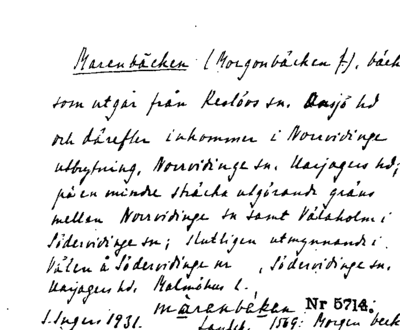 Marenbäcken (Morgonbäcken f.), bäck
som utgår från Reslövs sn. Onsjö hd
och därefter inkommer i Norrvidinge
utbrytning, Norrvidinge sn. Harjagers hd;
på en mindre sträcka utgörande gräns
mellan Norrvidinge sn samt Välaholm i
Södervidinge sn; slutligen utmynnande i
Välen å Södervidinge nr , Södervidinge sn.
Harjagers hd. Malmöhus l.
märenbäken Nr 5714.
S. Ingers 1931. Landeb. 1569: Morgen beck